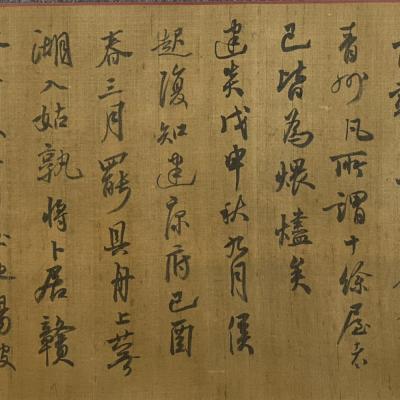 青州凡所謂十餘屋者
已皆為煨燼矣
建炎戊申秋九月侯
起復知建康府已酉
春三月罷具舟上蕪
湖入姑孰將卜居贛